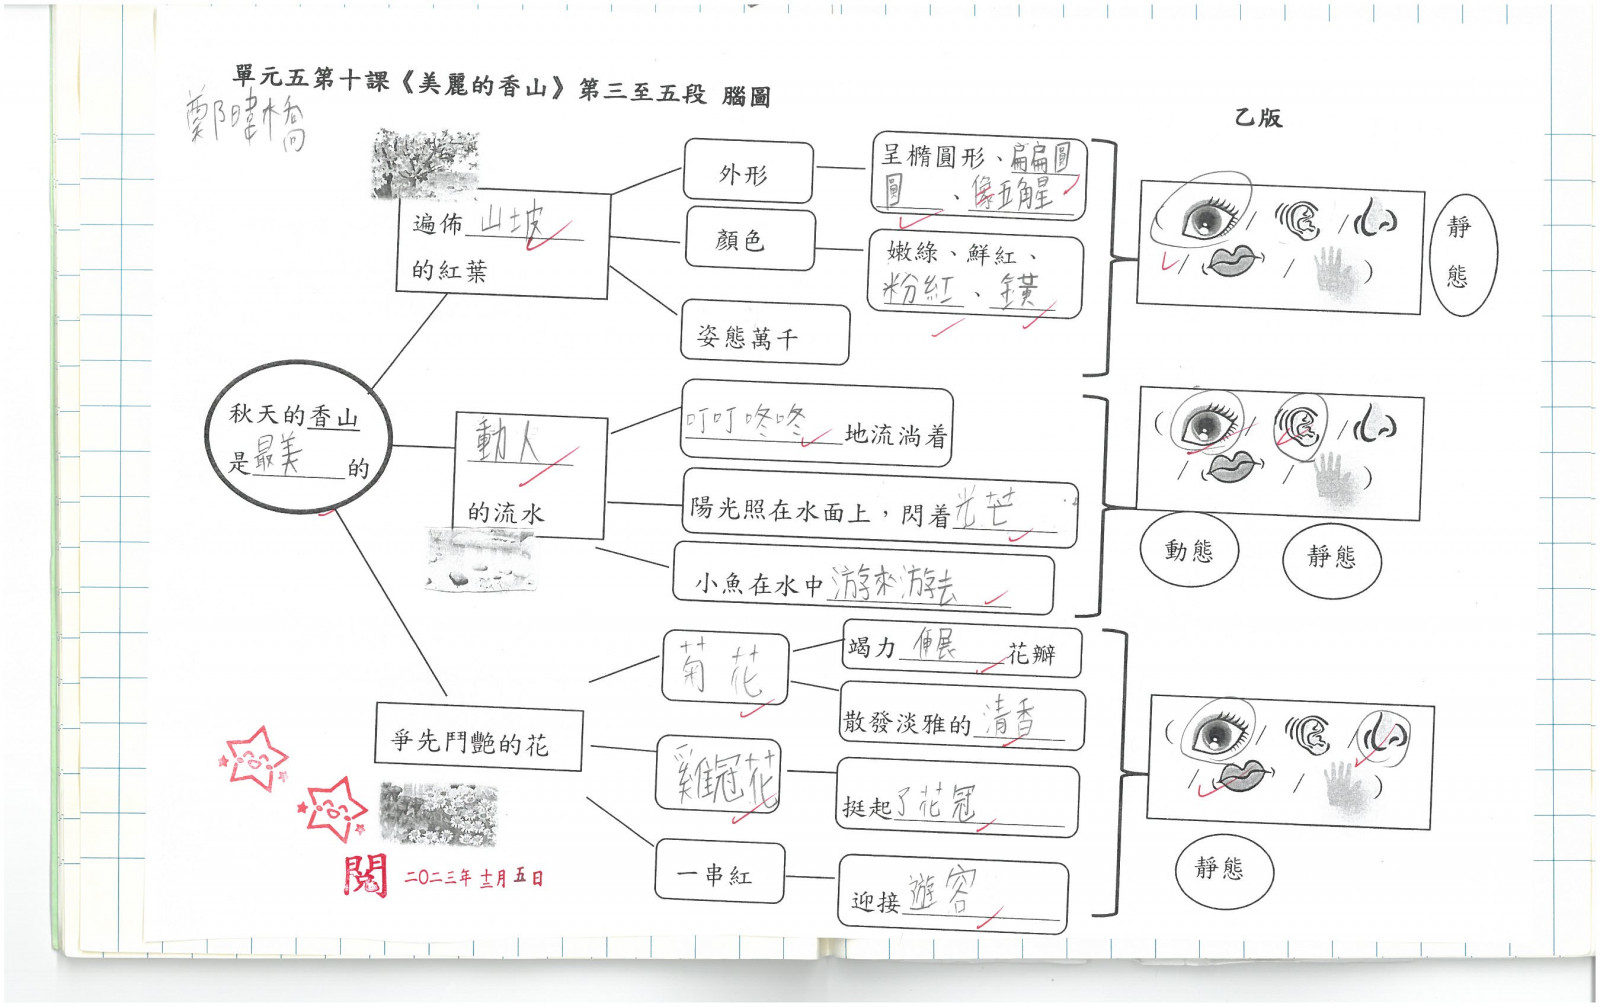 單元五第十課《美麗的香山》第三至五段 腦圖
鄭暐橋
乙版
秋天的香山
是最美的
遍佈山坡
的紅葉
外形
呈橢圓形、扁扁圓
圓、像五角星
顏色
嫩綠、鮮紅、
粉紅、鐄
姿態萬千
( / /
/ / )
靜
態
動人
的流水
叮叮咚咚地流淌着
陽光照在水面上，閃着光芒
小魚在水中游來游去
( / /
/ / )
動態
靜態
爭先鬥艷的花
菊花
竭力伸展花瓣
散發淡雅的清香
雞冠花
挺起了花冠
一串紅
迎接遊容
( / /
/ / )
靜態
閱
二〇二三年十二月五日